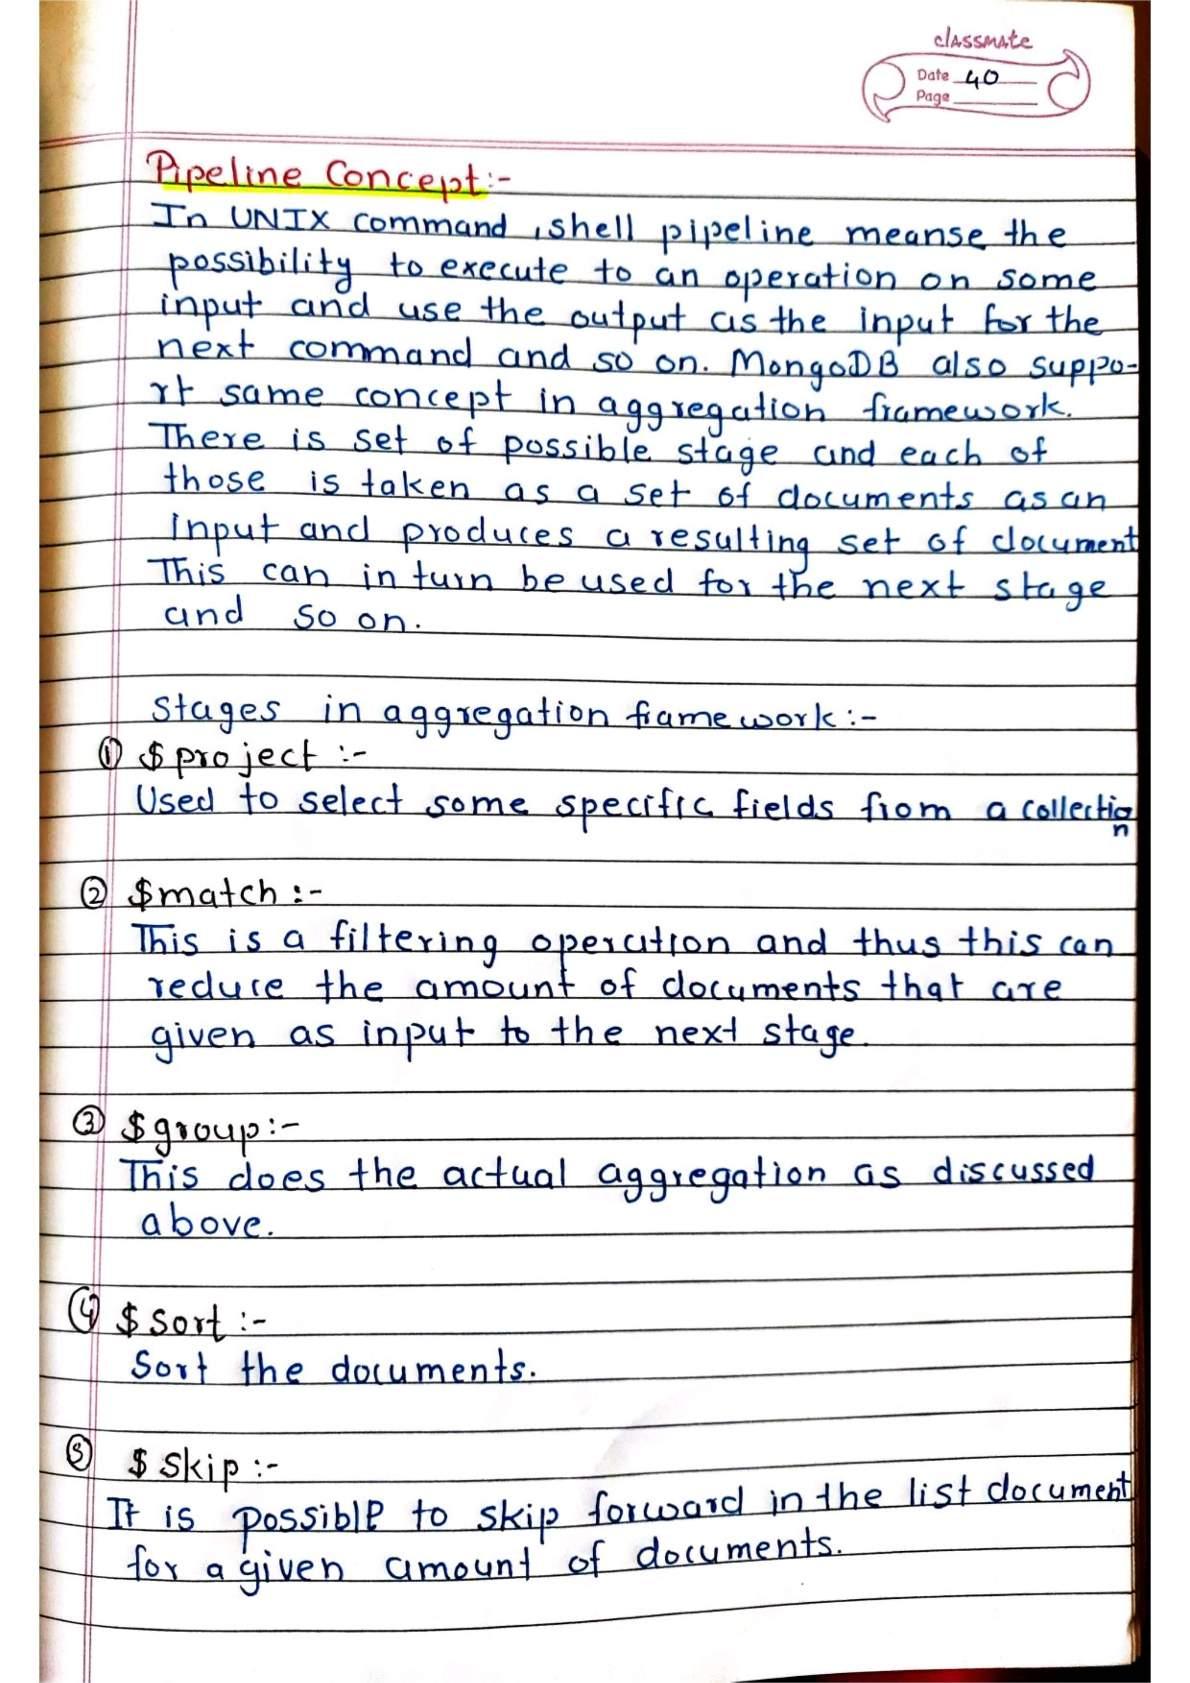 classmate
Date 40
Page
Pipeline Concept:-
In UNIX command , shell pipeline meanse the
possibility to execute to an operation on some
input and use the output as the input for the
next command and so on. MongoDB also suppo-
rt same concept in aggregation framework.
There is set of possible stage and each of
those is taken as a set of documents as an
input and produces a resulting set of document
This can in turn be used for the next stage
and so on.
Stages in aggregation framework:-
① $project :-
Used to select some specific fields from a collection
② $match :-
This is a filtering operation and thus this can
reduce the amount of documents that are
given as input to the next stage.
③ $group:-
This does the actual aggregation as discussed
above.
④ $sort :-
Sort the documents.
⑤ $skip :-
It is possible to skip forward in the list document
for a given amount of documents.